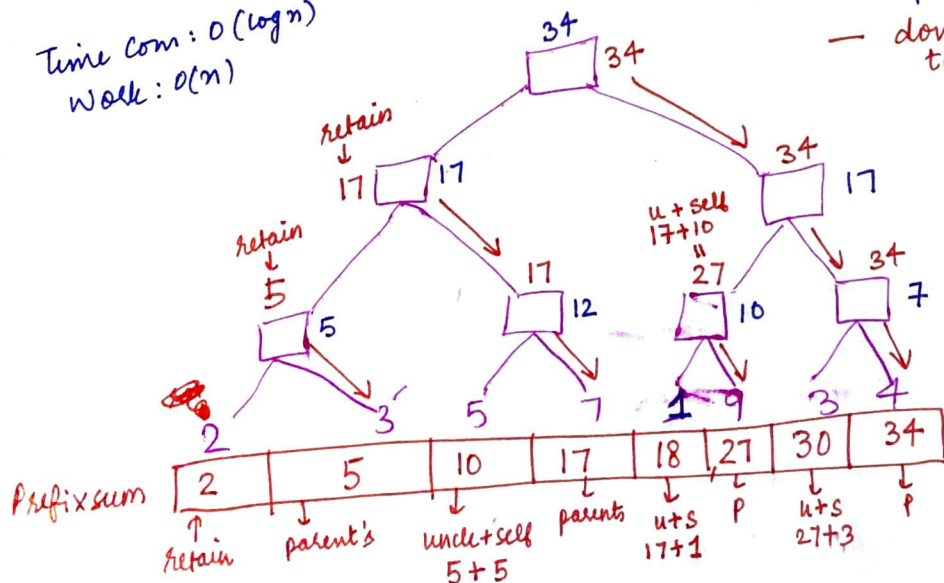 Time Com : O(logn)
Work : O(n)
34
34
— dow
retain
↓
17 17
34
17
u + self
17+10
=
27
10
retain
↓
5
5
17
12
34
7
2 3 5 7 1 9 3 4
Prefixsum 2 5 10 17 18 27 30 34
retain
parent's
uncle+self
5+5
parents
u+s
17+1
P
u+s
27+3
P